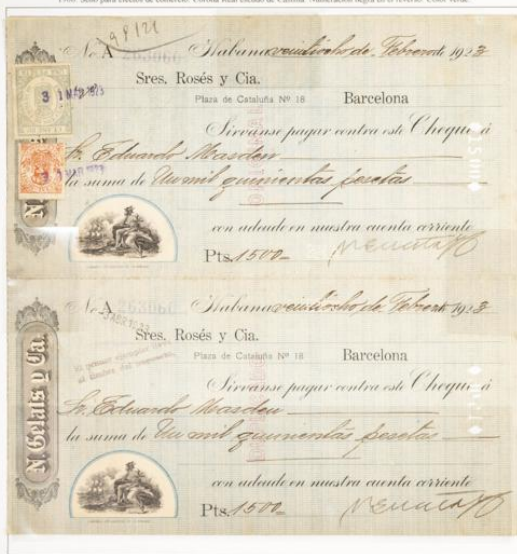 98121
No. A 263060 Habana veintiocho de Febrero de 1923
Sres. Rosés y Cia.
Plaza de Cataluña Nº 18 Barcelona
Sírvanse pagar contra este Cheque á
Sr. Eduardo Masdeu
la suma de Un mil quinientas pesetas
con adeudo en nuestra cuenta corriente
Pts. 1500=
31 MAR 1923
31 MAR 1923
No. A 263060 Habana veintiocho de Febrero de 1923
Sres. Rosés y Cia.
Plaza de Cataluña Nº 18 Barcelona
Sírvanse pagar contra este Cheque á
Sr. Eduardo Masdeu
la suma de Un mil quinientas pesetas
con adeudo en nuestra cuenta corriente
Pts. 1500=
N. Gelats y Ca.
El primer ejemplar